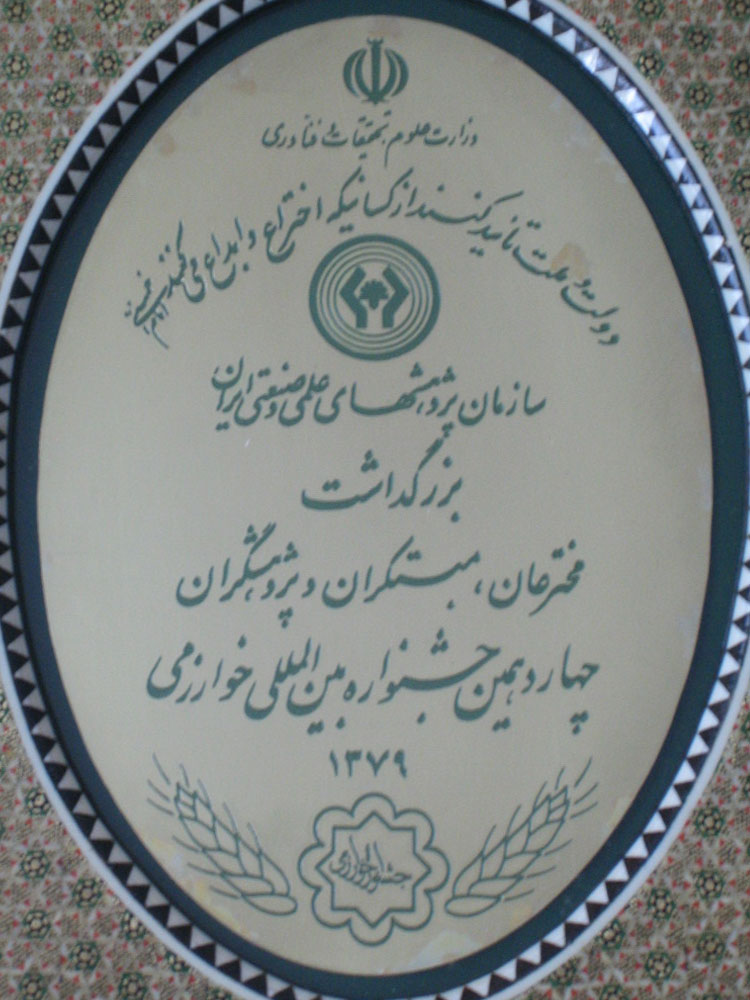 وزارت علوم تحقیقات و فناوری
دولت و ملت تائید کنند از کسانیکه اختراع و ابداع می کنند امام خمینی
سازمان پژوهشهای علمی و صنعتی ایران
بزرگداشت
مخترعان، مبتکران و پژوهشگران
چهاردهمین جشنواره بین المللی خوارزمی
۱۳۷۹
جشنواره خوارزمی